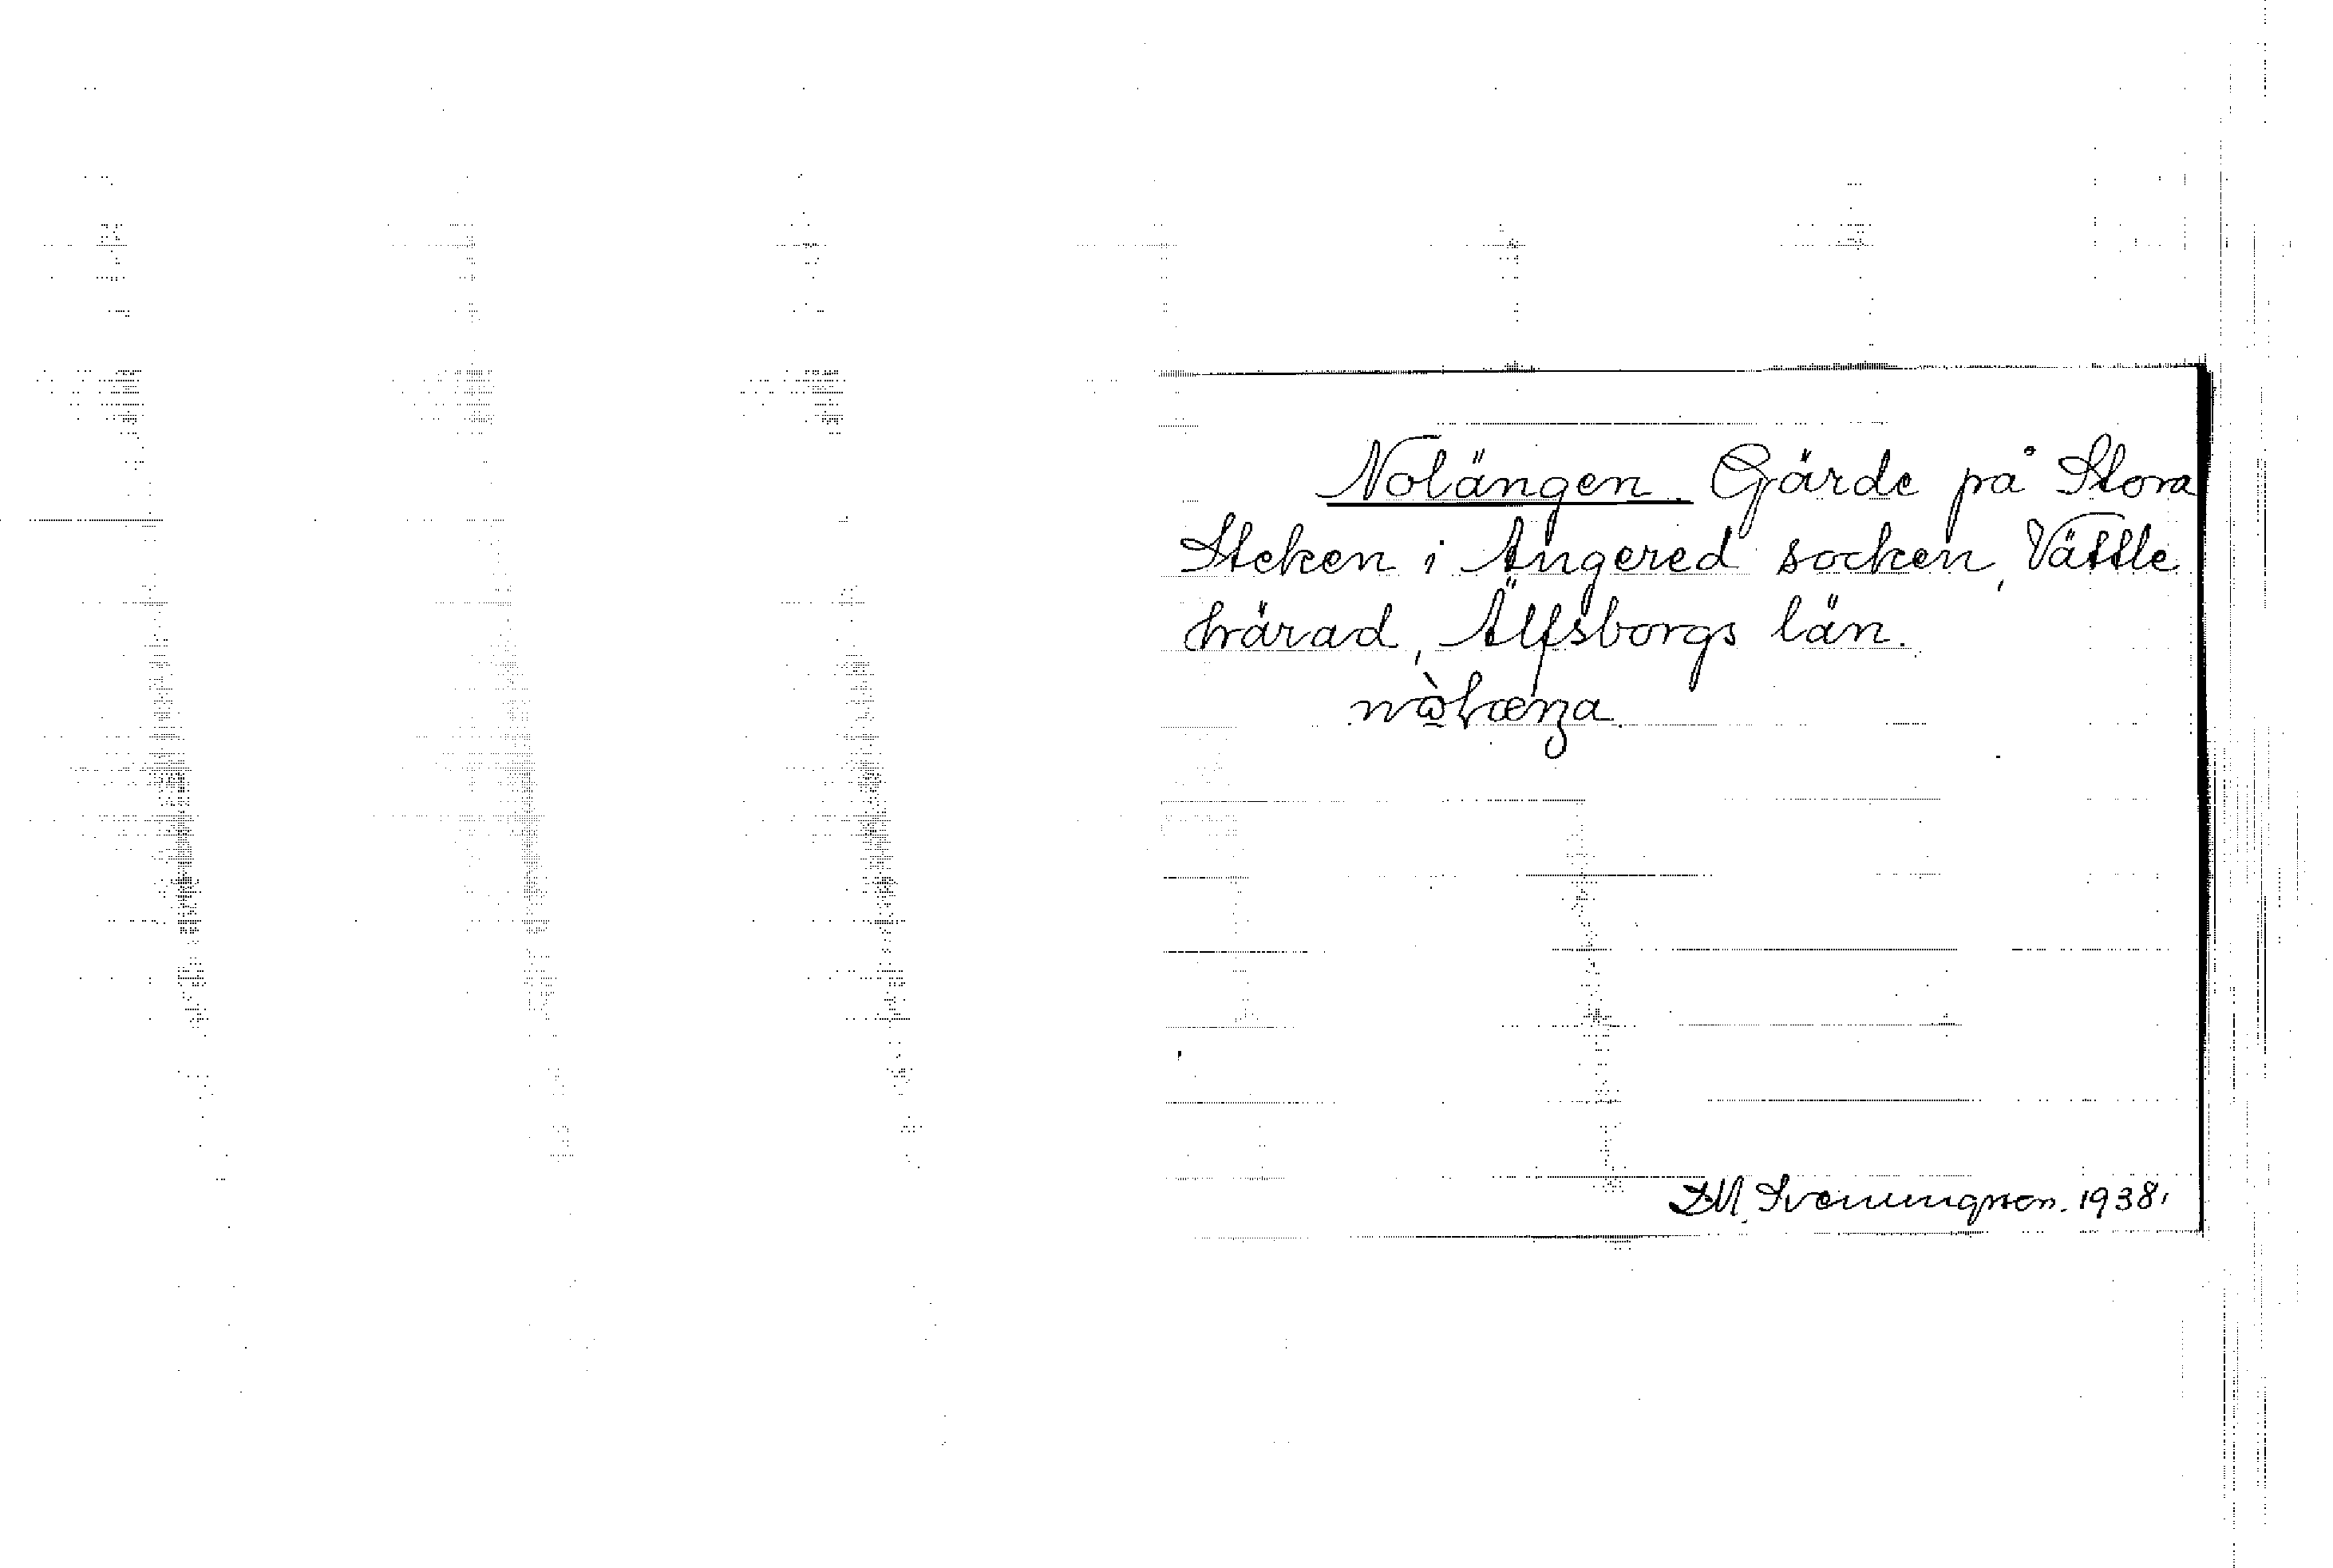 Nolängen. Gärde på Stora
Steken i Angered socken, Vättle
härad, Älfsborgs län.
S.M. Svenningson. 1938.